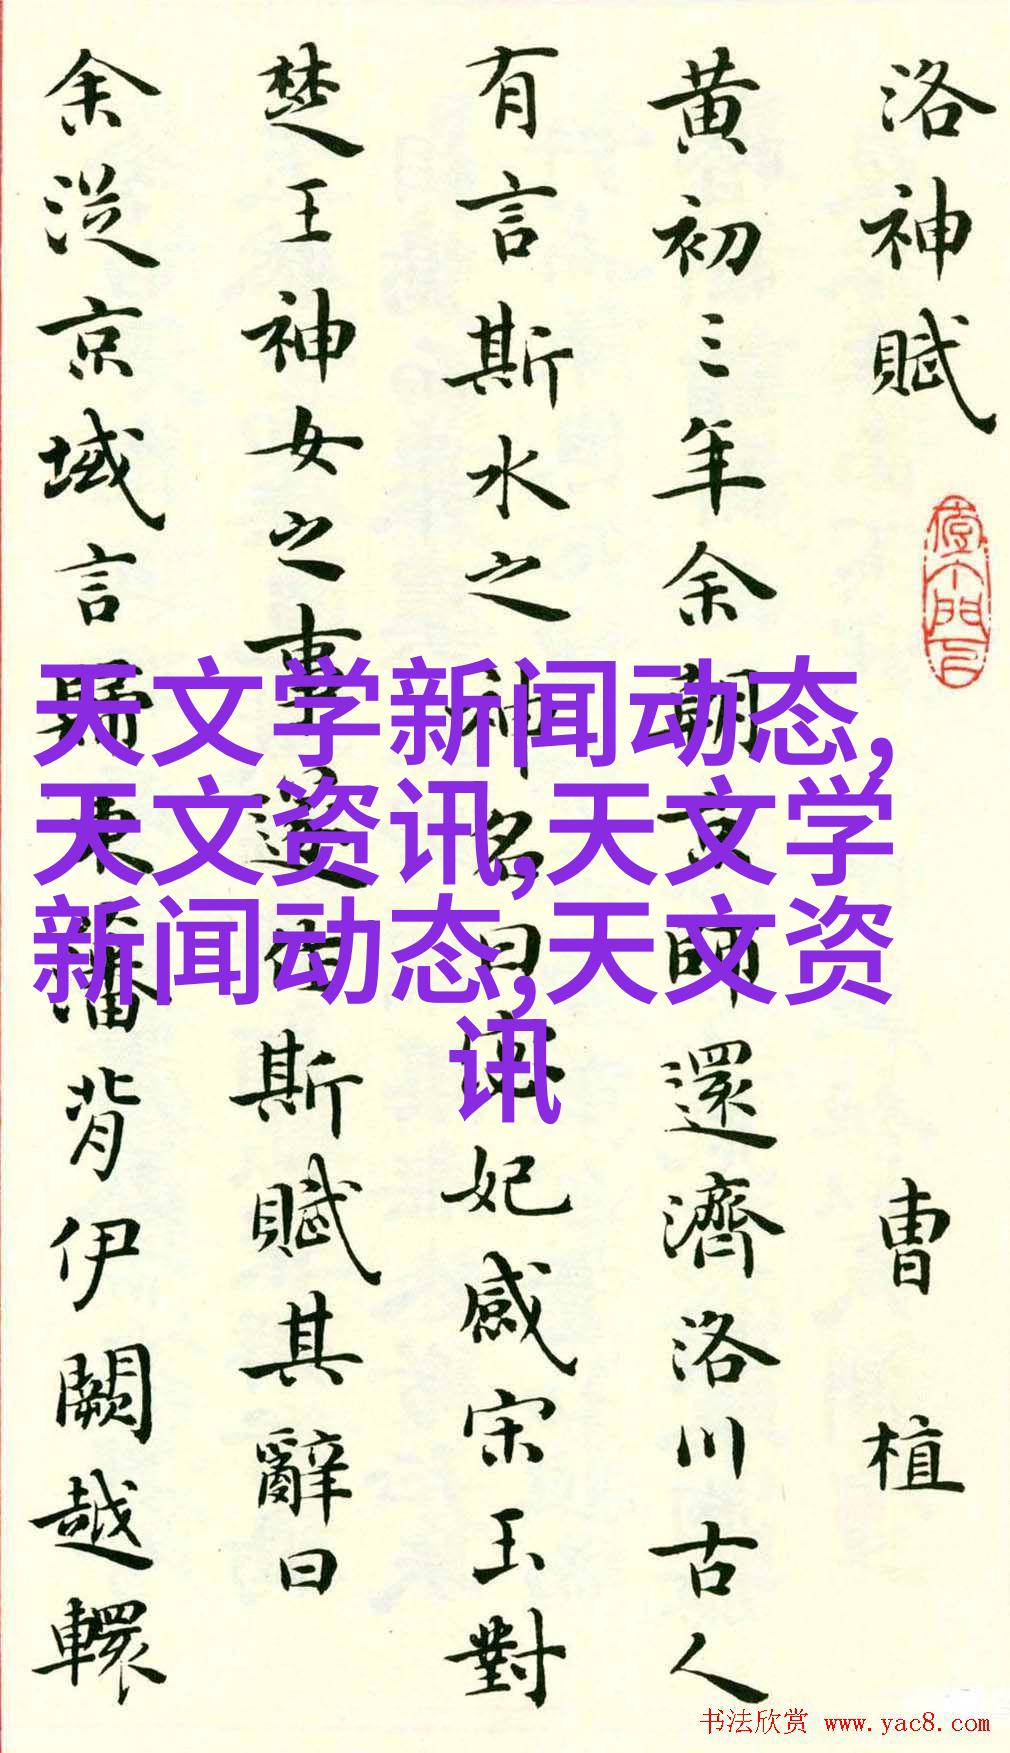 洛神賦
曹植
黄初三年余朝京師還濟洛川古人
有言斯水之神名曰宓妃感宋玉對
楚王神女之事遂作斯賦其辭曰
余從京域言歸東藩背伊闕越轘
天文学新闻动态,
天文资讯,天文学
新闻动态,天文资
讯
书法欣赏 www.yac8.com